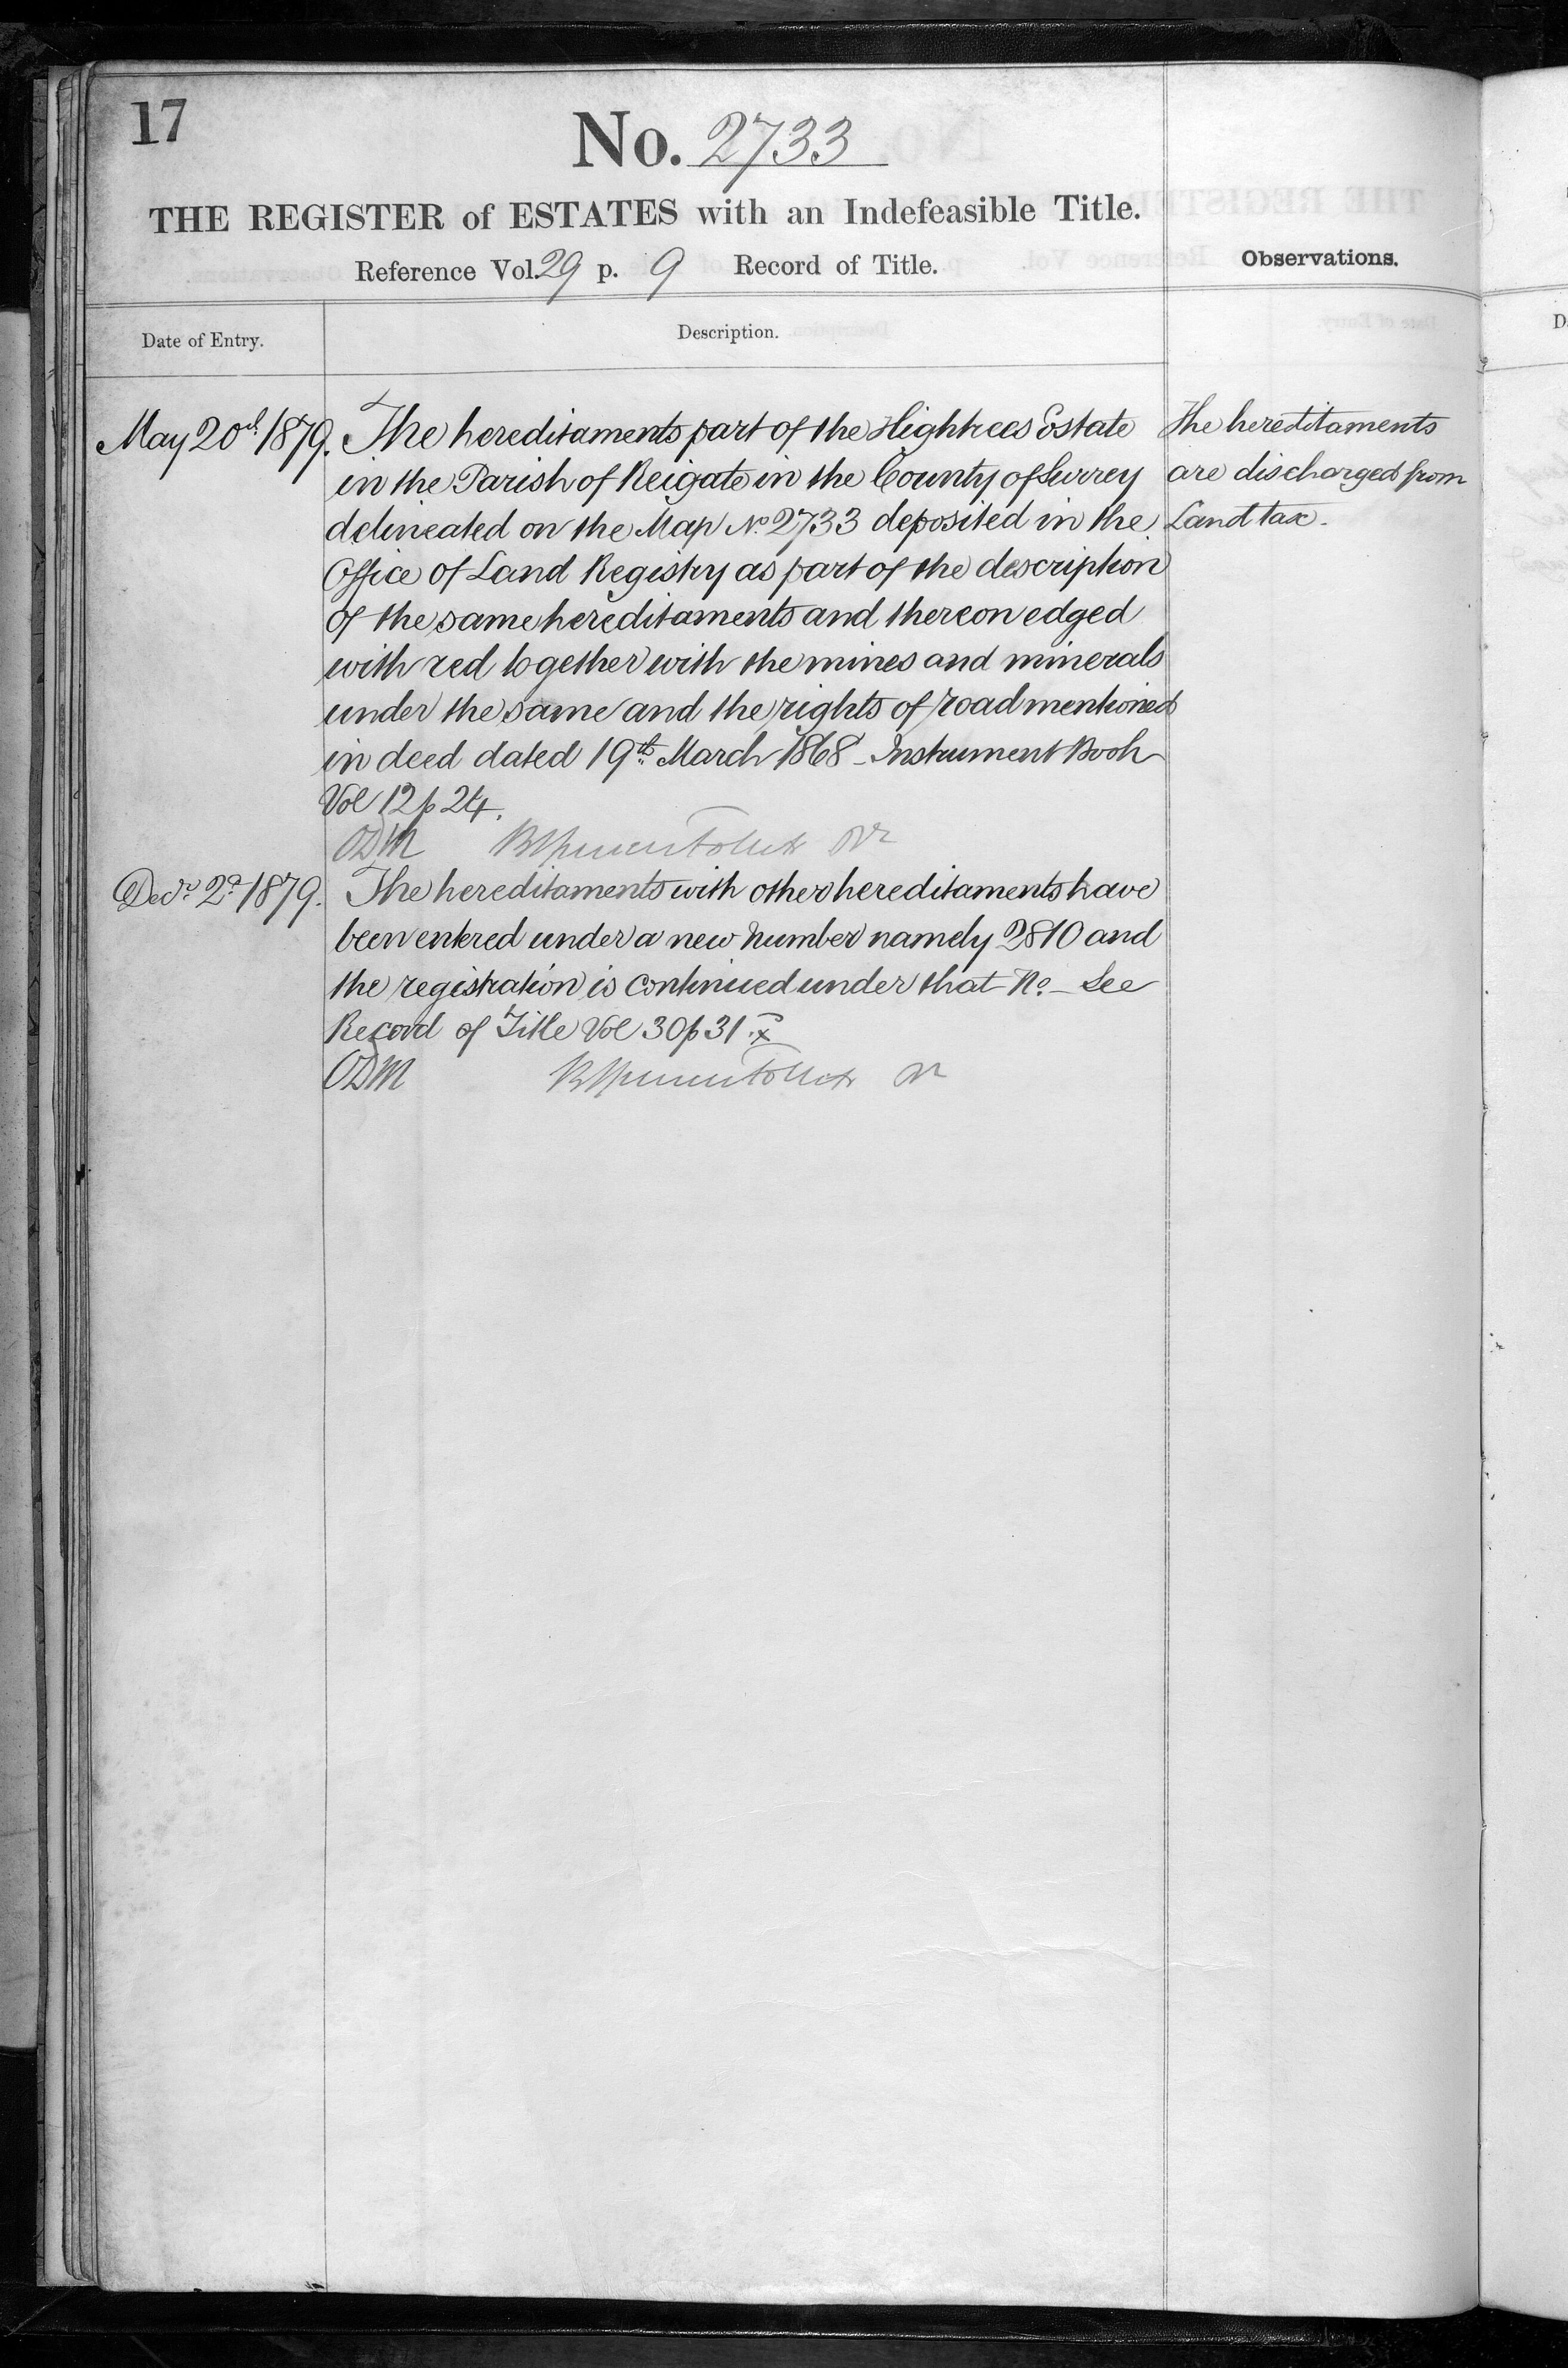 17
No. 2733
THE REGISTER of ESTATES with an Indefeasible Title.
Reference Vol. 29 p. 9 Record of Title.
Observations.
Date of Entry.
Description.
May 20th 1879. The hereditaments part of the Hightrees Estate
in the Parish of Reigate in the County of Surrey
delineated on the Map No. 2733 deposited in the
Office of Land Registry as part of the description
of the same hereditaments and thereon edged
with red together with the mines and minerals
under the same and the rights of road mentioned
in deed dated 19th March 1868 - Instrument Book
Vol 12 p 24.
ODM
The hereditaments
are discharged from
Land tax.
Decr. 2d 1879. The hereditaments with other hereditaments have
been entered under a new number namely 2810 and
the registration is continued under that No. - See
Record of Title Vol 30 p 31. x
ODM